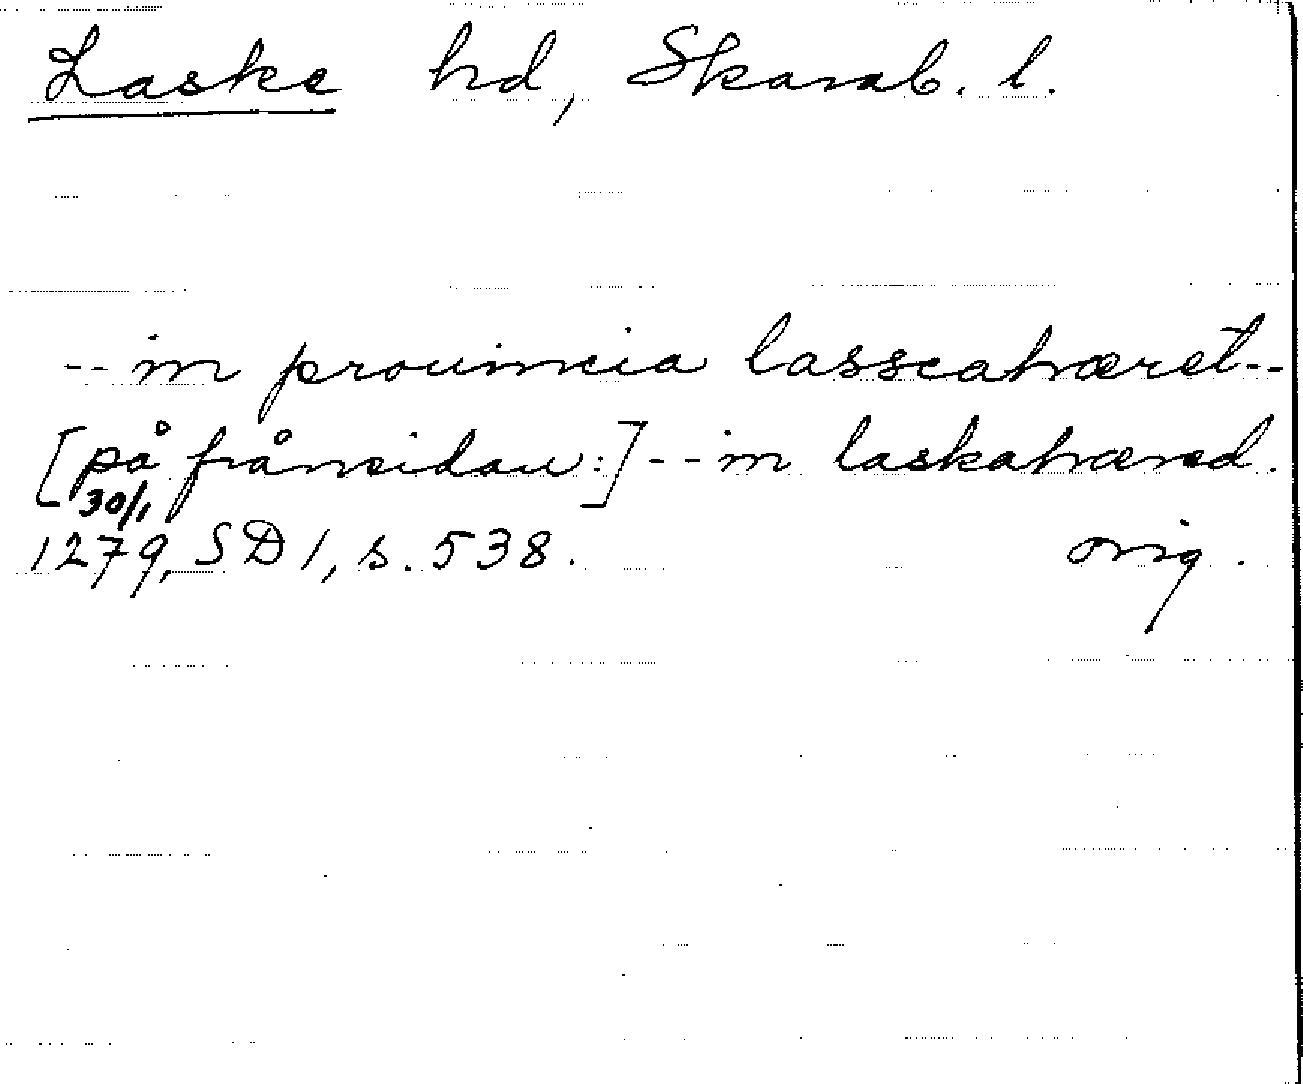 Laske hd, Skarab. l.
-- in prouincia lasscahæret --
[på frånsidan:] -- in laskahærad.
30/1
1279, SD 1, s. 538. orig.